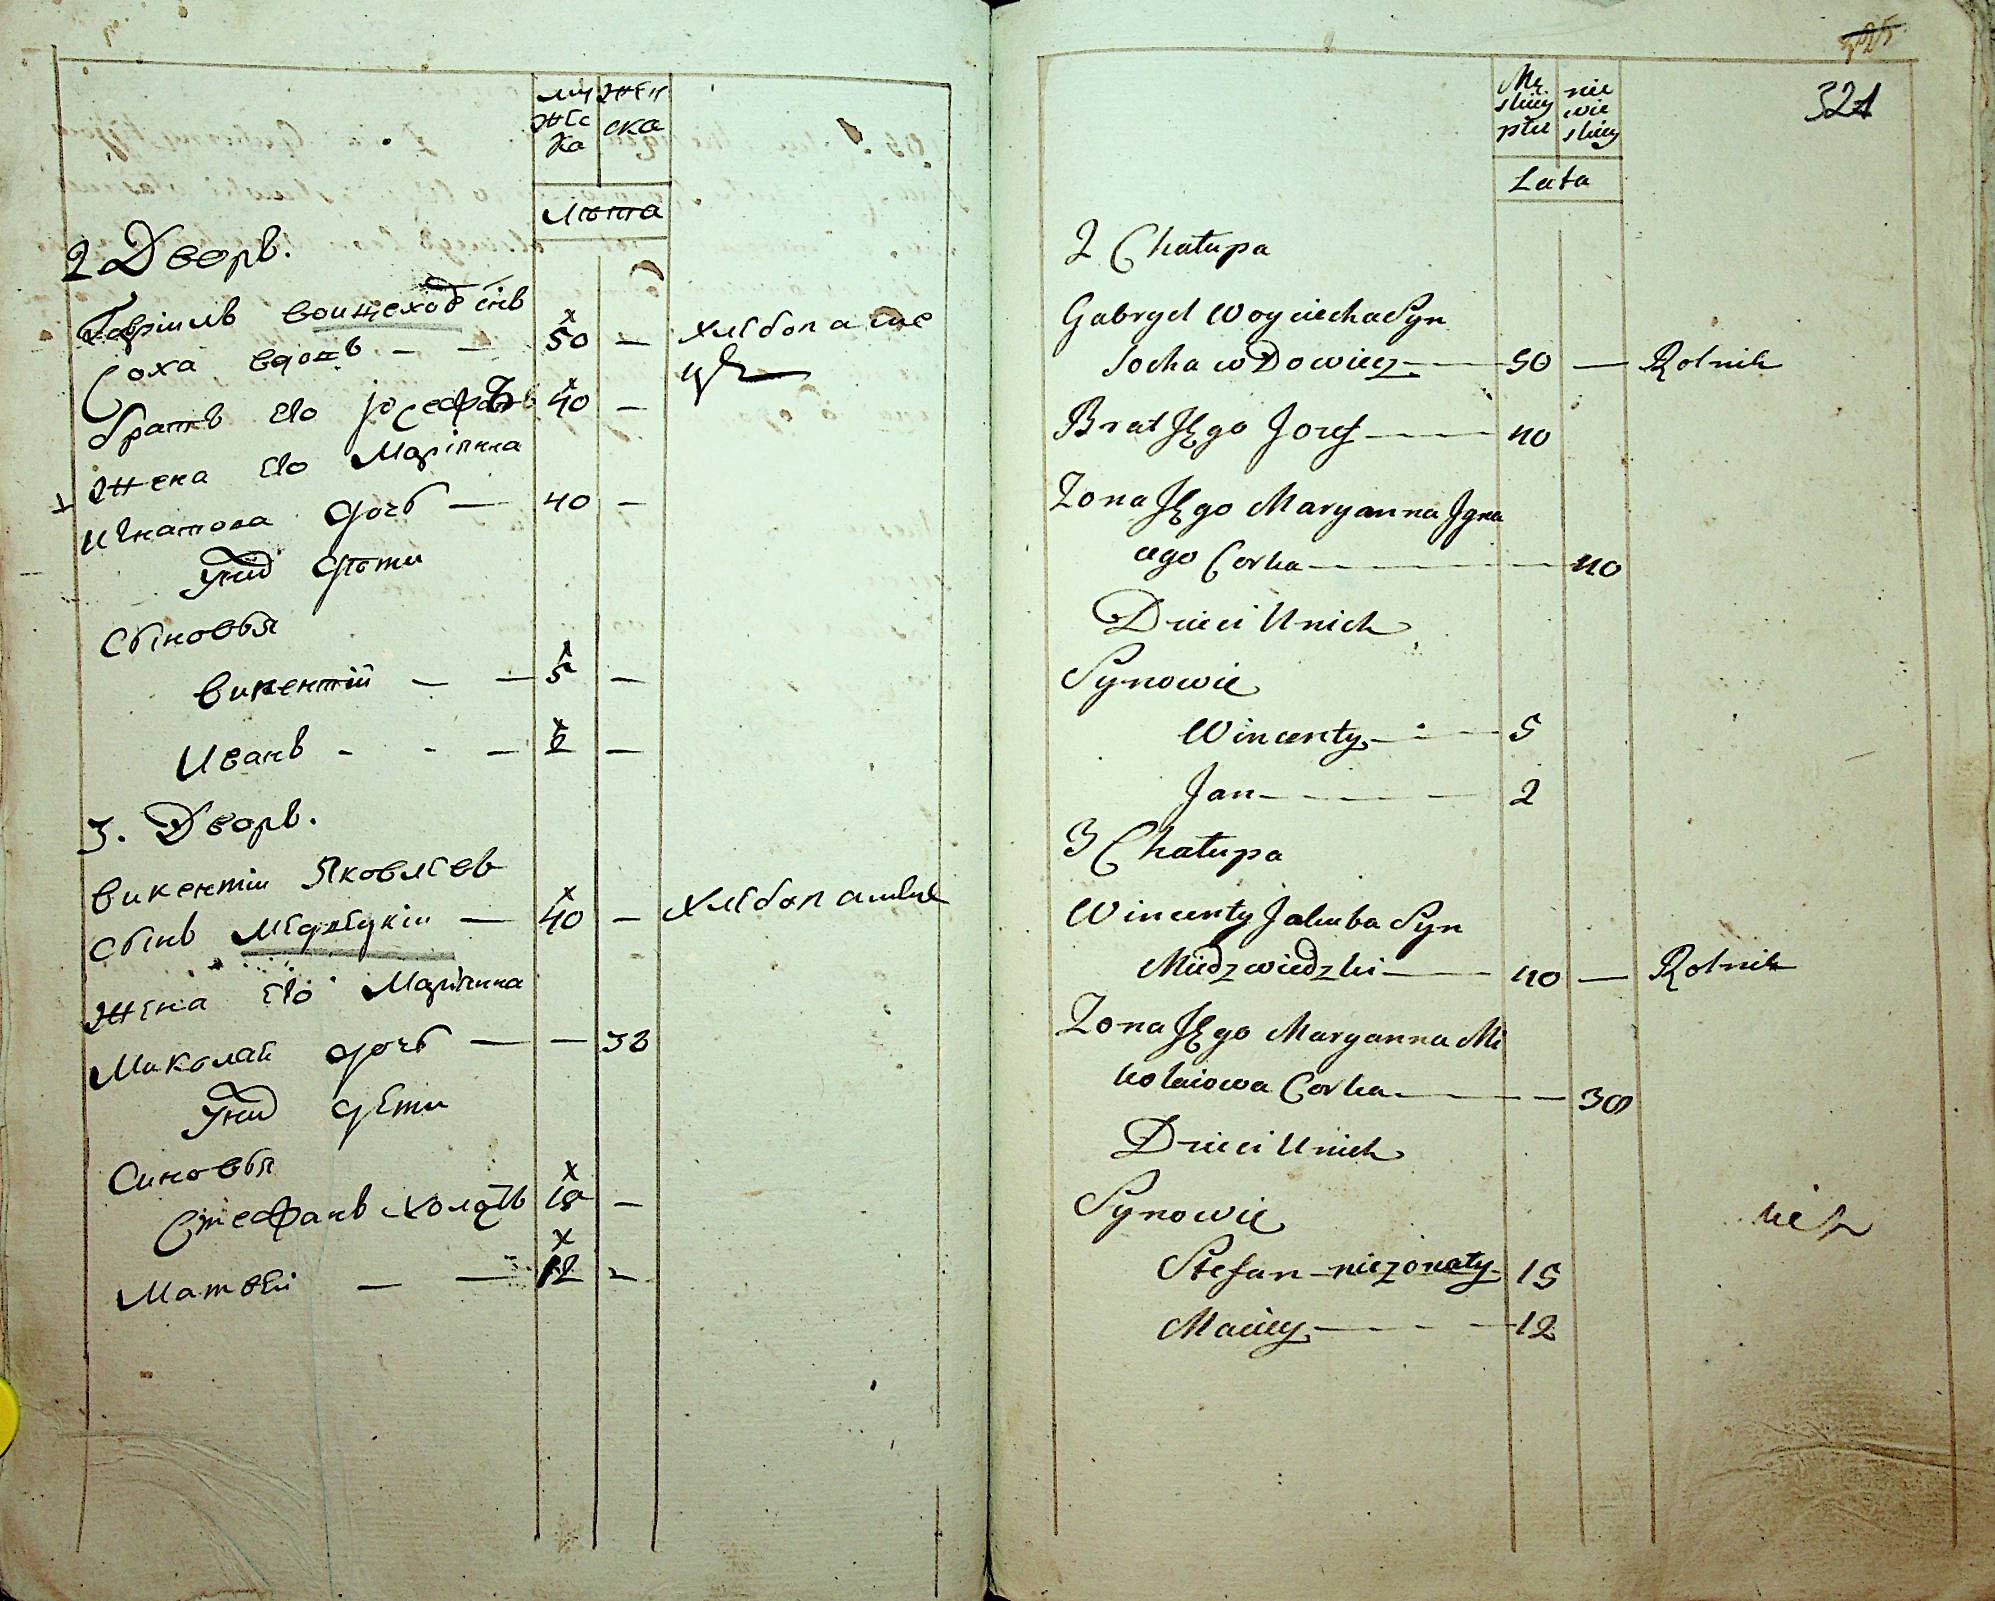 муж
еска
жен
ска
Лѣта
2 Дворъ.
Гавріилъ Воицеховъ снъ
Соха вдовъ – – 50 –
братъ его Іосефатъ 40 –
Жена его Маріянна
Игнатова дочь – 40 –
у них дѣти
Сыновья
Викентій – – 5 –
Иванъ - - – 2 –
3. Дворъ.
Викентіи Яковлев
сынъ – 40 –
Жена его Маріянна
Миколаи дочь – – 38
у них дѣти
Синовья
Стефанъ холостъ 18 –
Матвеи – – 12 –
325
321
Mę
skiey
płci
nie
wie
skiey
Lata
2 Chałupa
Gabryel Woyciecha Syn
Socha w Dowiecz — 50 — Rolnik
Brat Jego Jozef — 40
Zona Jego Maryanna Jgna
cego Corka — 40
Dzieci Unich
Synowie
Wincenty — 5
Jan — 2
3 Chałupa
Wincenty Jakuba Syn
Miedzwiedzki — 40 — Rolnik
Zona Jego Maryanna Mi
kołaiowa Corka — 38
Dzieci Unich
Synowie
Stefan – niezonaty – 15
Maciey — 12